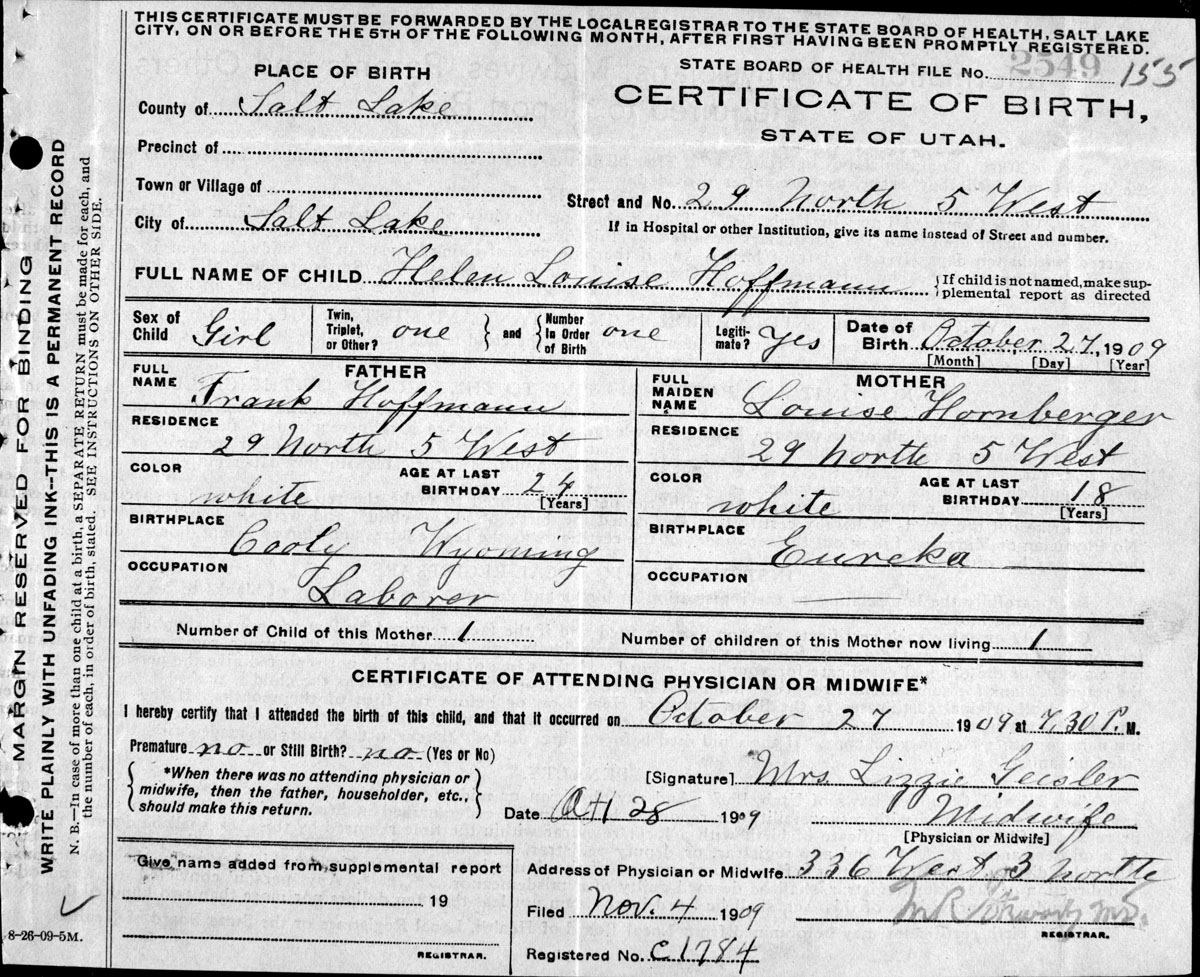 THIS CERTIFICATE MUST BE FORWARDED BY THE LOCAL REGISTRAR TO THE STATE BOARD OF HEALTH, SALT LAKE
CITY, ON OR BEFORE THE 5TH OF THE FOLLOWING MONTH, AFTER FIRST HAVING BEEN PROMPTLY REGISTERED.
STATE BOARD OF HEALTH FILE No. 2549 155
CERTIFICATE OF BIRTH,
STATE OF UTAH.
PLACE OF BIRTH
County of Salt Lake
Precinct of
Town or Village of
City of Salt Lake
Street and No. 29 North 5 West
If in Hospital or other Institution, give its name instead of Street and number.
FULL NAME OF CHILD Helen Louise Hoffmann
{If child is not named, make sup-
plemental report as directed
Sex of Child Girl
Twin, Triplet, or Other? one } and { Number In Order of Birth one
Legiti-mate? Yes
Date of Birth October 27, 1909
[Month] [Day] [Year]
FATHER
FULL NAME Frank Hoffmann
RESIDENCE
29 North 5 West
COLOR white
AGE AT LAST BIRTHDAY 24
[Years]
BIRTHPLACE
Wyoming
OCCUPATION
Laborer
MOTHER
FULL MAIDEN NAME Louise Hornberger
RESIDENCE
29 North 5 West
COLOR white
AGE AT LAST BIRTHDAY 18
[Years]
BIRTHPLACE
Eureka
OCCUPATION
Number of Child of this Mother 1
Number of children of this Mother now living 1
CERTIFICATE OF ATTENDING PHYSICIAN OR MIDWIFE*
I hereby certify that I attended the birth of this child, and that it occurred on October 27 1909 at 7.30 P. M.
Premature no or Still Birth? no (Yes or No)
{ *When there was no attending physician or
midwife, then the father, householder, etc.,
should make this return. }
[Signature] Mrs. Lizzie Geisler
Date Oct 28 1909
Midwife
[Physician or Midwife]
Give name added from supplemental report
19
REGISTRAR.
Address of Physician or Midwife 336 West 3 North
Filed Nov. 4 1909
REGISTRAR.
Registered No. C1784
MARGIN RESERVED FOR BINDING
WRITE PLAINLY WITH UNFADING INK--THIS IS A PERMANENT RECORD
N. B.—In case of more than one child at a birth, a SEPARATE RETURN must be made for each, and
the number of each, in order of birth, stated. SEE INSTRUCTIONS ON OTHER SIDE.
8-26-09-5M.